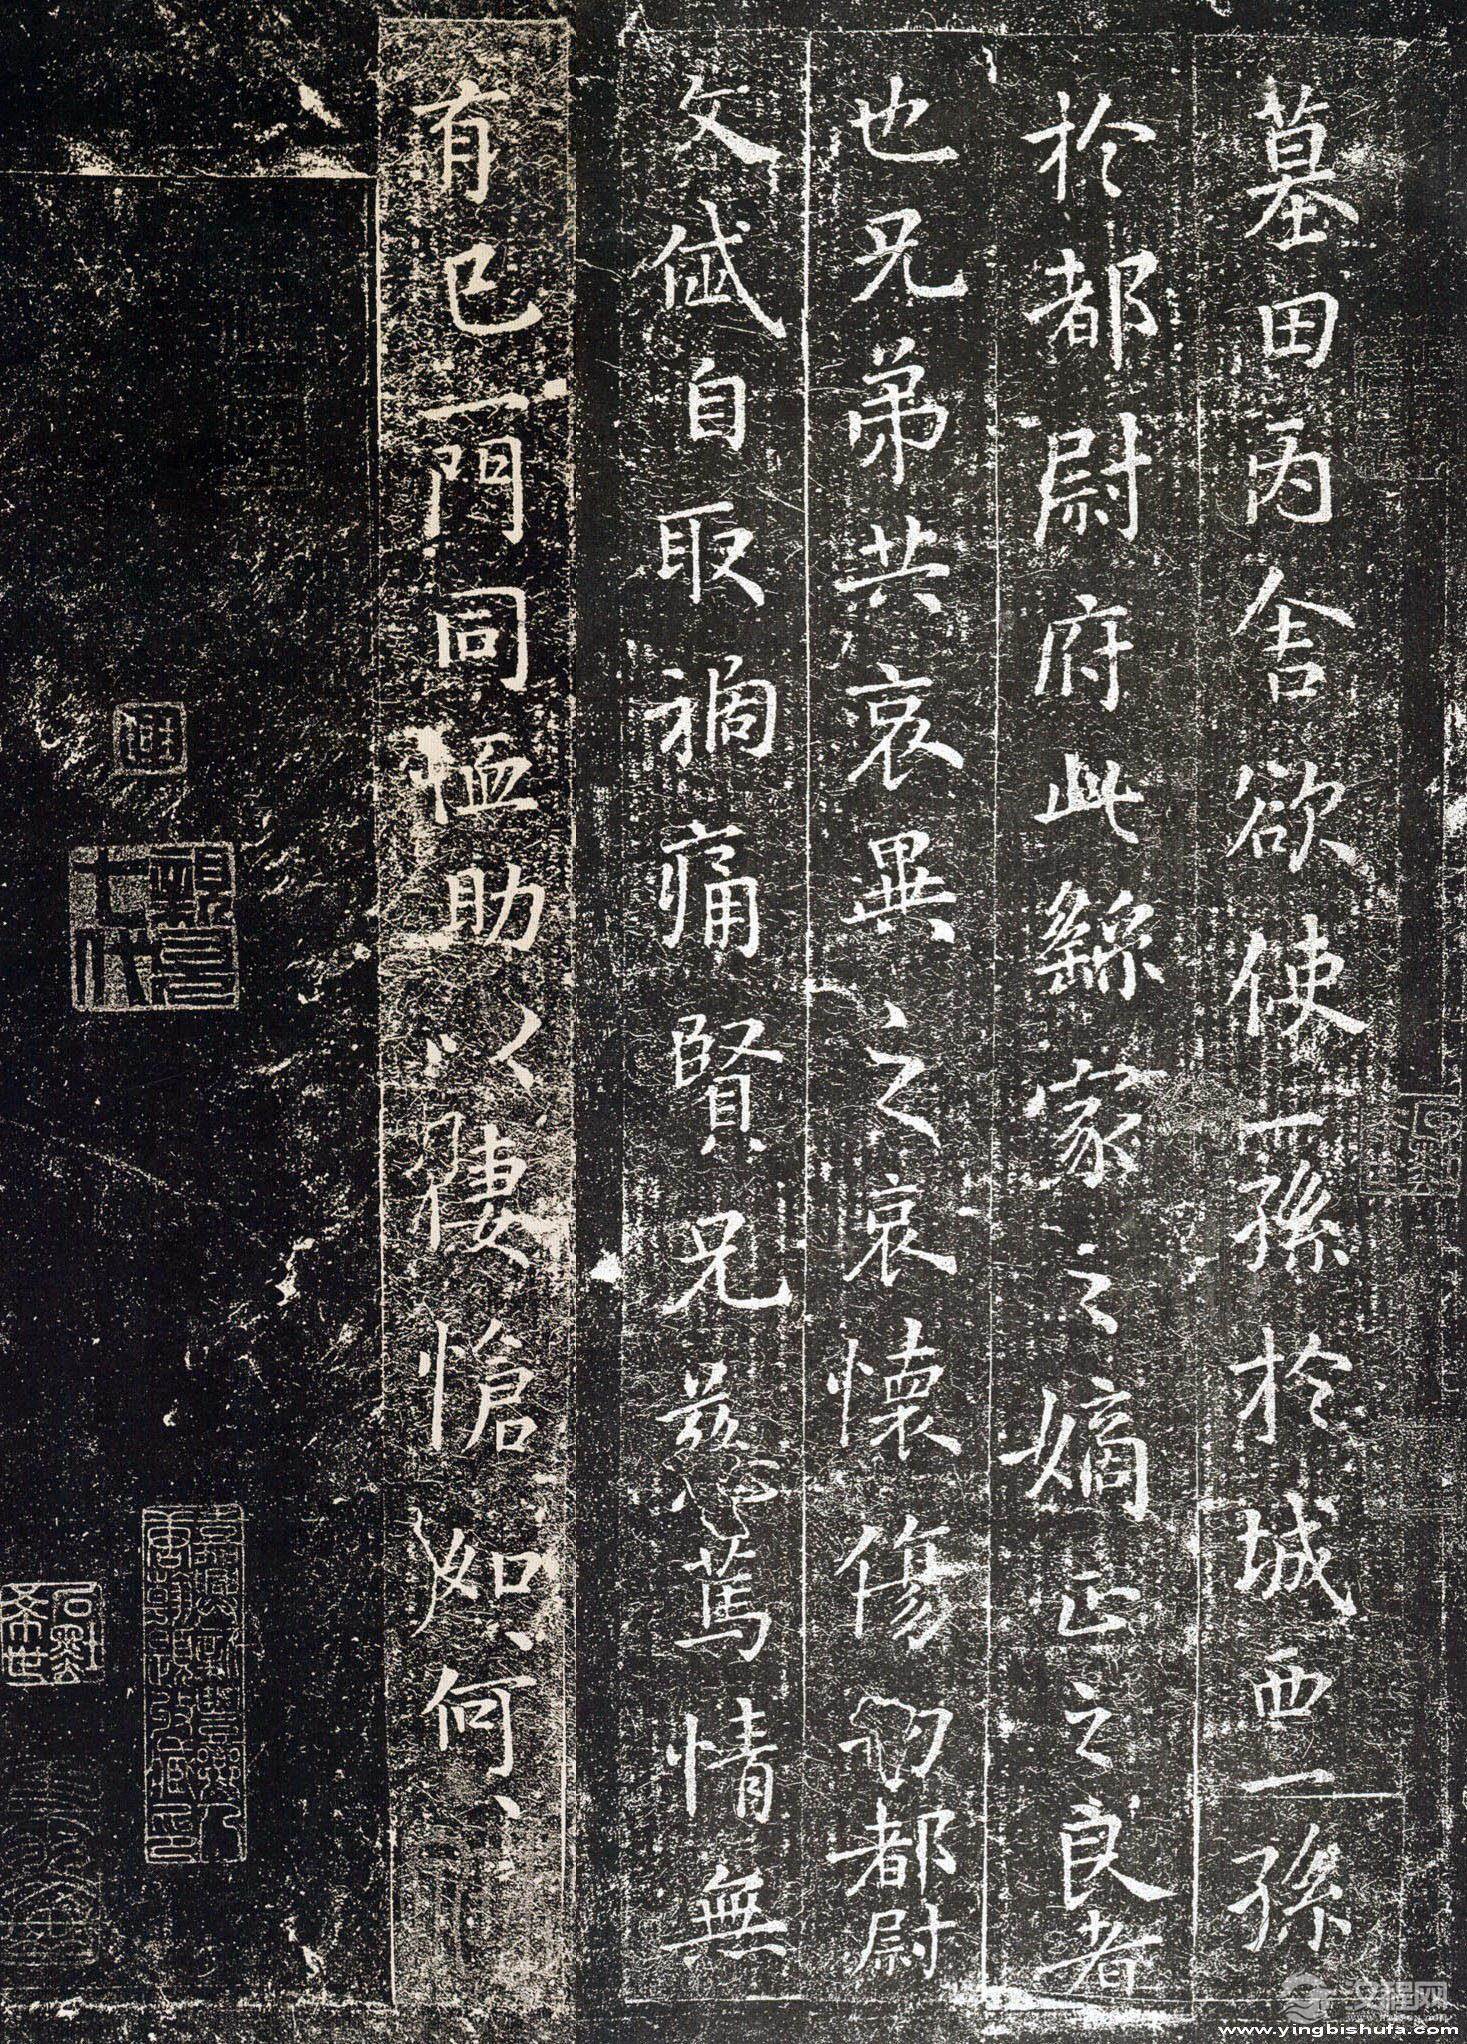 墓田丙舍欲使一孫於城西一孫
於都尉府此繇家之嫡正之良者
也兄弟共哀異之哀懷傷切都尉
文岱自取禍痛賢兄慈篤情無
有已一門同恤助以悽愴如〻何〻
汉程网
www.yingbishufa.com